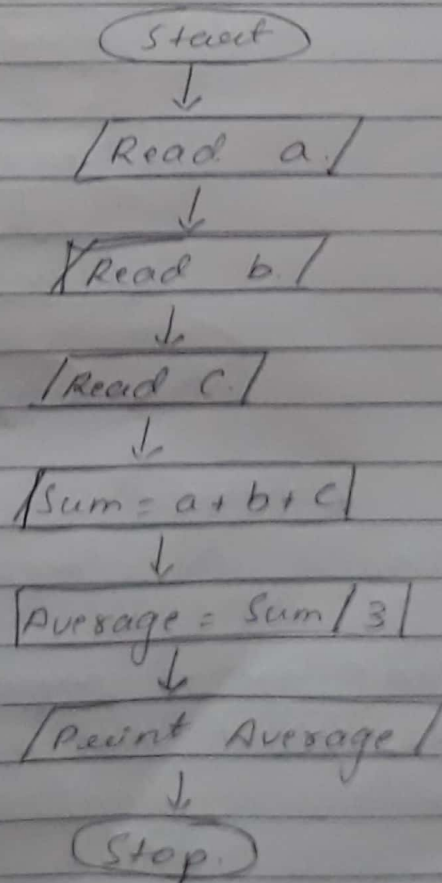 Start
Read a.
Read b.
Read c.
Sum = a + b + c
Average = Sum / 3
Print Average
Stop.